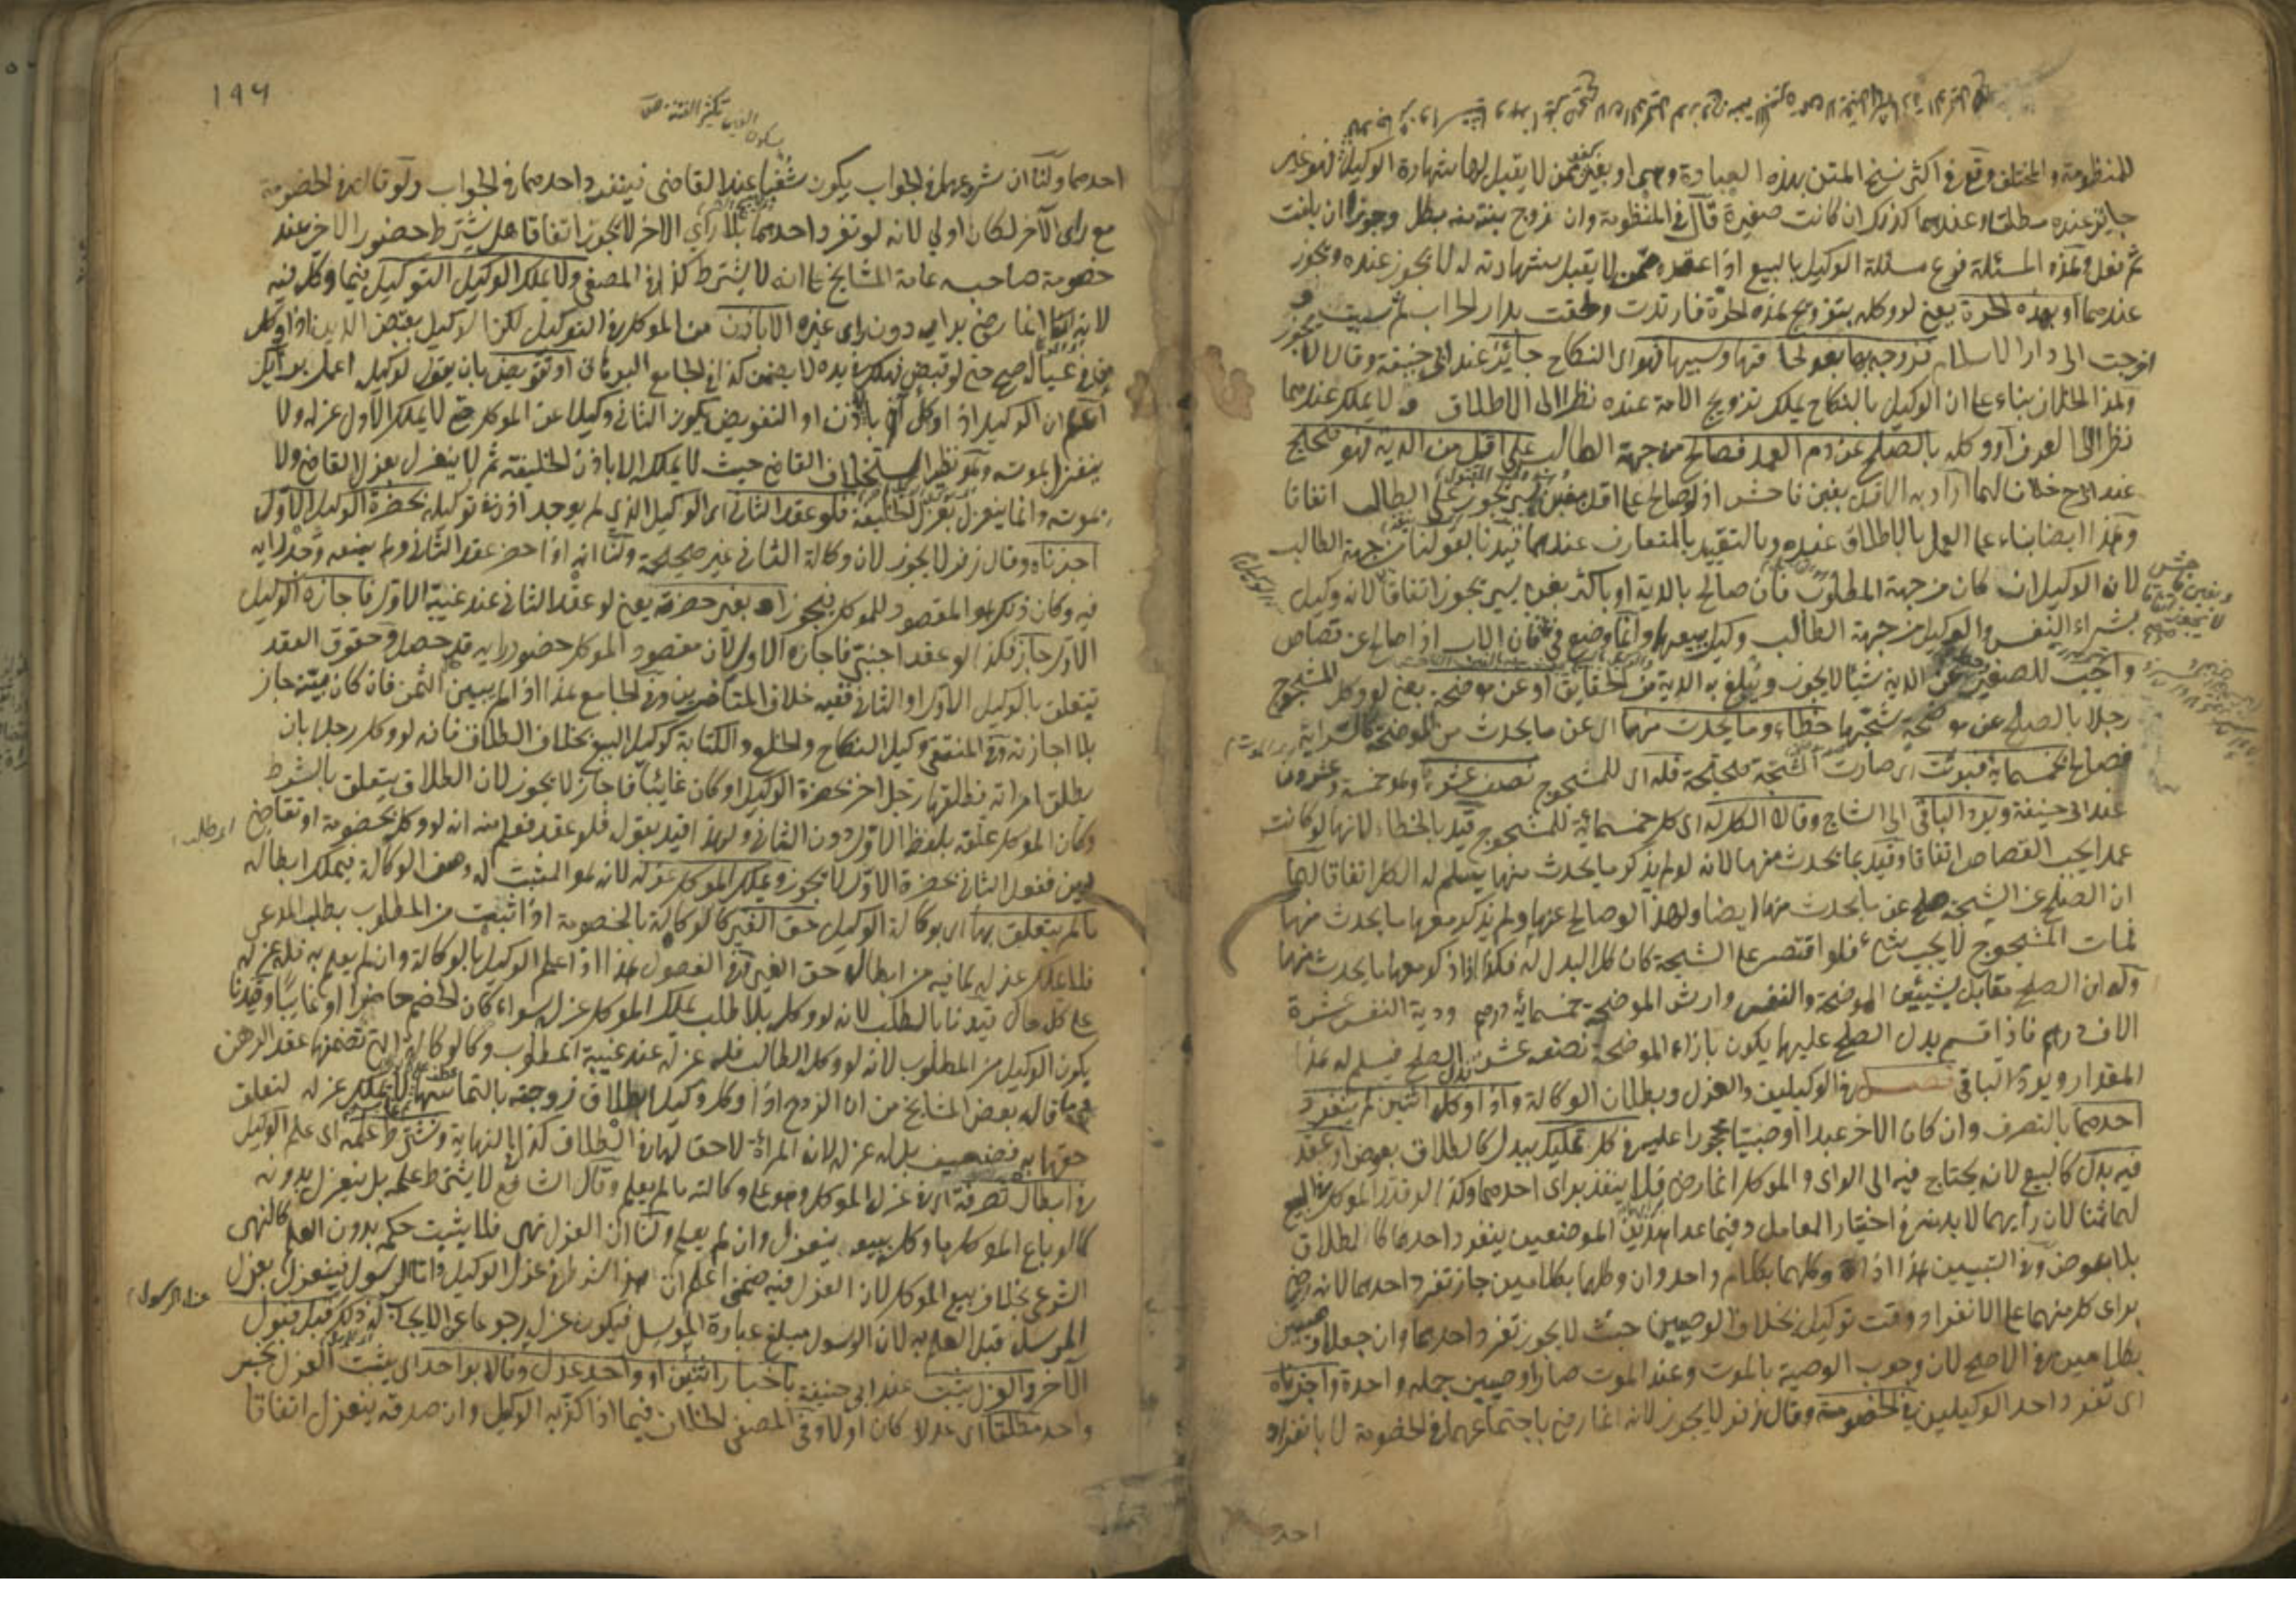 للمنظومة والمختلف وقع في اكثر نسخ المتن بهذه العبارة وهي او بغير كفء ممن لا يقبل لها شهادة الوكيل فهو غير
جايز عنده مطلقا وعندهما كذلك ان كانت صغيرة قال في المنظومة وان تزوج بنته منه بطل وجوزا ان بلغت
ثم نقل وهذه المسئلة فرع مسئلة الوكيل بالبيع اذا عقده ممن لا يقبل شهادته له لا يجوز عنده ويجوز
عندهما او بهذه الحرة يعني لو وكله بتزويج هذه الحرة فارتدت ولحقت بدار الحرب ثم سبيت و
اخرجت الى دار الاسلام فزوجه بها بعد فهو اي النكاح جايز عند ابي حنيفة وقالا لا يجوز
وهذا الخلاف بناء على ان الوكيل بالنكاح يملك تزويج الامة عنده نظرا الى الاطلاق ولا يملك عندهما
نظرا الى العرف او وكله بالصلح عن دم العمد فصالح من جهة الطالب على اقل من الدية فهو صحيح
عند ابي ح خلافا لهما اراد به الاقل بغبن فاحش اذ لو صالح على اقل بغبن يسير يجوز على الطالب اتفاقا
وهذا ايضا بناء على العمل بالاطلاق عنده وبالتقييد بالمتعارف عندهما قيدنا بقولنا من جهة الطالب
لان الوكيل ان كان من جهة المطلوب فان صالح بالدية او باكثر بغبن يسير يجوز اتفاقا لانه وكيل
بشراء النفس والوكيل من جهة الطالب وكيل ببيعها وانما وضع في فان الاب اذا صالح عن قصاص
واجب للصغير من الدية شيئا لا يجوز ويبلغ به الدية من الحقايق او عن موضحة يعني لو وكل المشجوج
رجلا بالصلح عن موضحة شجها خطاء وما يحدث منها اي عن ما يحدث من الموضحة كالسراية
فصالح بخمسمائة فبرئت اي صارت الشجة صحيحة فله اي للمشجوج نصف عشره وهو خمسة وعشرون
عند ابي حنيفة ويرد الباقي الى الشاج وقالا الكل له اي كل خمسمائة للمشجوج قيد بالخطاء لانها لو كانت
عمدا يجب القصاص اتفاقا وقيد بما يحدث منها لانه لو لم يذكر ما يحدث منها يسلم له الكل اتفاقا لهما
ان الصلح عن الشجة صلح عن ما يحدث منها ايضا ولهذا لو صالح عنها ولم يذكر معها ما يحدث منها
فمات المشجوج لا يجب شيء فلو اقتصر على الشجة كان كل البدل له فكذا اذا ذكر معها ما يحدث منها
وله ان الصلح مقابل بشيئين الموضحة والنفس وارش الموضحة خمسمائة درهم ودية النفس عشرة
الاف درهم فاذا قسم بدل الصلح عليها يكون بازاء الموضحة نصف عشر بدل الصلح فيسلم له هذا
المقدار ويرد الباقي فصل في الوكيلين والعزل وبطلان الوكالة واذا وكل اثنين لم ينفرد
احدهما بالتصرف وان كان الاخر عبدا او صبيا محجورا عليه في كل تمليك ببدل كالطلاق بعوض او عقد
فيه بدل كالبيع لانه يحتاج فيه الى الراي والموكل انما رضي فلا ينفذ براي احدهما وكذا لو قدر الموكل في البيع
لهما ثمنا لان رأيهما لا بد منه في اختيار المعامل وفيما عدا هذين الموضعين ينفرد احدهما كالطلاق
بلا عوض وفي التبيين هذا اذا وكلهما بكلام واحد وان وكلهما بكلامين جاز تفرد احدهما لانه رضي
براي كل منهما على الانفراد وقت توكيله بخلاف الوصيين حيث لا يجوز تفرد احدهما وان جعلا وصيين
بكلامين في الاصح لان وجوب الوصية بالموت وعند الموت صارا وصيين جملة واحدة واجزناه
اي تفرد احد الوكيلين في الخصومة وقال زفر لا يجوز لانه انما رضي باجتماعهما في الخصومة لا بانفراد
احد
١٩٦
احدهما ولنا ان شروعهما في الجواب يكون شغبا عند القاضي فينفرد احدهما في الجواب ولو قال في الخصومة
مع راي الآخر لكان اولى لانه لو تفرد احدهما بلا رأي الاخر لا يجوز اتفاقا هل يشترط حضور الاخر عند
خصومة صاحبه عامة المشايخ على انه لا يشترط كذا في المصفى ولا يملك الوكيل التوكيل فيما وكل فيه
لانه انما رضي برايه دون راي غيره الا باذن من الموكل في التوكيل لكن الوكيل بقبض الدين اذا وكل
من في عياله صح حتى لو قبض فهلك في يده لا يضمن كذا في الجامع البرهاني او تفويض بان يقول لوكيله اعمل برأيك
اعلم ان الوكيل اذا وكل آخر باذن او التفويض يكون الثاني وكيلا عن الموكل حتى لا يملك الاول عزله ولا
ينعزل بموته وهو نظير استخلاف القاضي حيث لا يملكه الا باذن الخليفة ثم لا ينعزل بعزل القاضي ولا
بموته وانما ينعزل بعزل الخليفة فلو عقد الثاني اي الوكيل الذي لم يوجد اذن في توكيله بحضرة الوكيل الاول
اجزناه وقال زفر لا يجوز لان وكالة الثاني غير صحيحة ولنا انه اذا حضر عقد الثاني ولم يمنعه وجد رايه
فيه وكان ذلك هو المقصود للموكل فيجوز او بغير حضرته يعني لو عقد الثاني عند غيبة الاول فاجازه الوكيل
الاول جاز فكذا لو عقد اجنبي فاجازه الاول لان مقصود الموكل حضور رايه قد حصل وحقوق العقد
يتعلق بالوكيل الاول او الثاني ففيه خلاف المتأخرين وفي الجامع هذا اذا لم يبين الثمن فان كان بينه جاز
بلا اجازته وفي المنتقى وكيل النكاح والخلع والكتابة كوكيل البيع بخلاف الطلاق فانه لو وكل رجلا بان
يطلق امراته فطلقها رجل اخر بحضرة الوكيل او كان غائبا فاجاز لا يجوز لان الطلاق يتعلق بالشرط
وكان الموكل علقه بلفظ الاول دون الثاني ولهذا قيد بقوله فلو عقد فعلم منه انه لو وكل بخصومة او تقاضي
دين ففعل الثاني بحضرة الاول لا يجوز ويملك الموكل عزله لانه هو المثبت له وصف الوكالة فيملك ابطاله
ما لم يتعلق بها اي بوكالة الوكيل حق الغير كالوكالة بالخصومة اذا اثبتت من المطلوب بطلب المدعي
فلا يملك عزله لما فيه من ابطال حق الغير وفي الفصول هذا اذا علم الوكيل بالوكالة وان لم يعلم به فله عزله
على كل حال قيدنا بالطلب لانه لو وكل بلا طلب يملك الموكل عزله سواء كان الخصم حاضرا او غايبا وقيدنا
بكون الوكيل من المطلوب لانه لو وكله الطالب فله عزله عند غيبة المطلوب وكالوكالة التي تضمنها عقد الرهن
قاله بعض المشايخ من ان الزوج اذا وكل وكيلا بطلاق زوجته بالتماسها لا يملك عزله لتعلق
حقها به فضعيف بل له عزله لان المراة لا حق لها في الطلاق كذا في النهاية ويشترط علمه اي علم الوكيل
في ابطال تصرفه اي في عزل الموكل وهو على وكالته ما لم يعلم وقال الشافعي لا يشترط علمه بل ينعزل بدونه
كما لو باع الموكل ما وكل ببيعه ينعزل وان لم يعلم ولنا ان العزل نهي فلا يثبت حكمه بدون العلم كالنهي
الشرعي بخلاف بيع الموكل لان العزل فيه ضمني اعلم ان هذا الشرط في عزل الوكيل واما الرسول فينعزل بعزل
المرسل قبل العلم به لان الرسول مبلغ عبارة المرسل فيكون عزله رجوعا عن الايجاب وله ذلك قبل قبول
الآخر والعزل يثبت عند ابي حنيفة باخبار اثنين او واحد عدل وقالا بواحد اي يثبت العزل بخبر
واحد مطلقا اي عدلا كان او لا وفي المصفى الخلاف فيما اذا كذبه الوكيل وان صدقه ينعزل اتفاقا